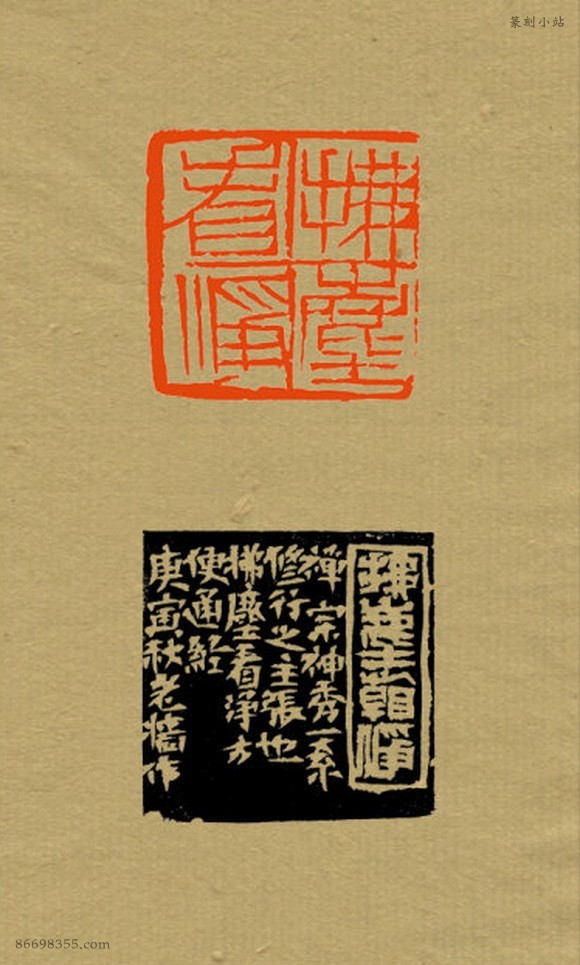 篆刻小站
拂尘看净
拂尘看净
禅宗神秀一系
修行之主張也
拂塵看浄方
便通経
庚寅秋老墻作
86698355.com